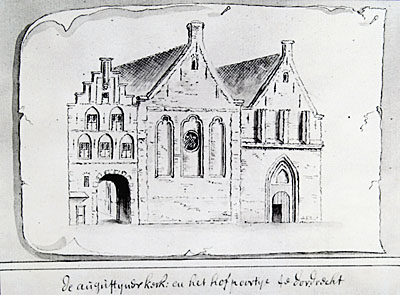 de augustyner kerk: en het hof poortye te dordrecht